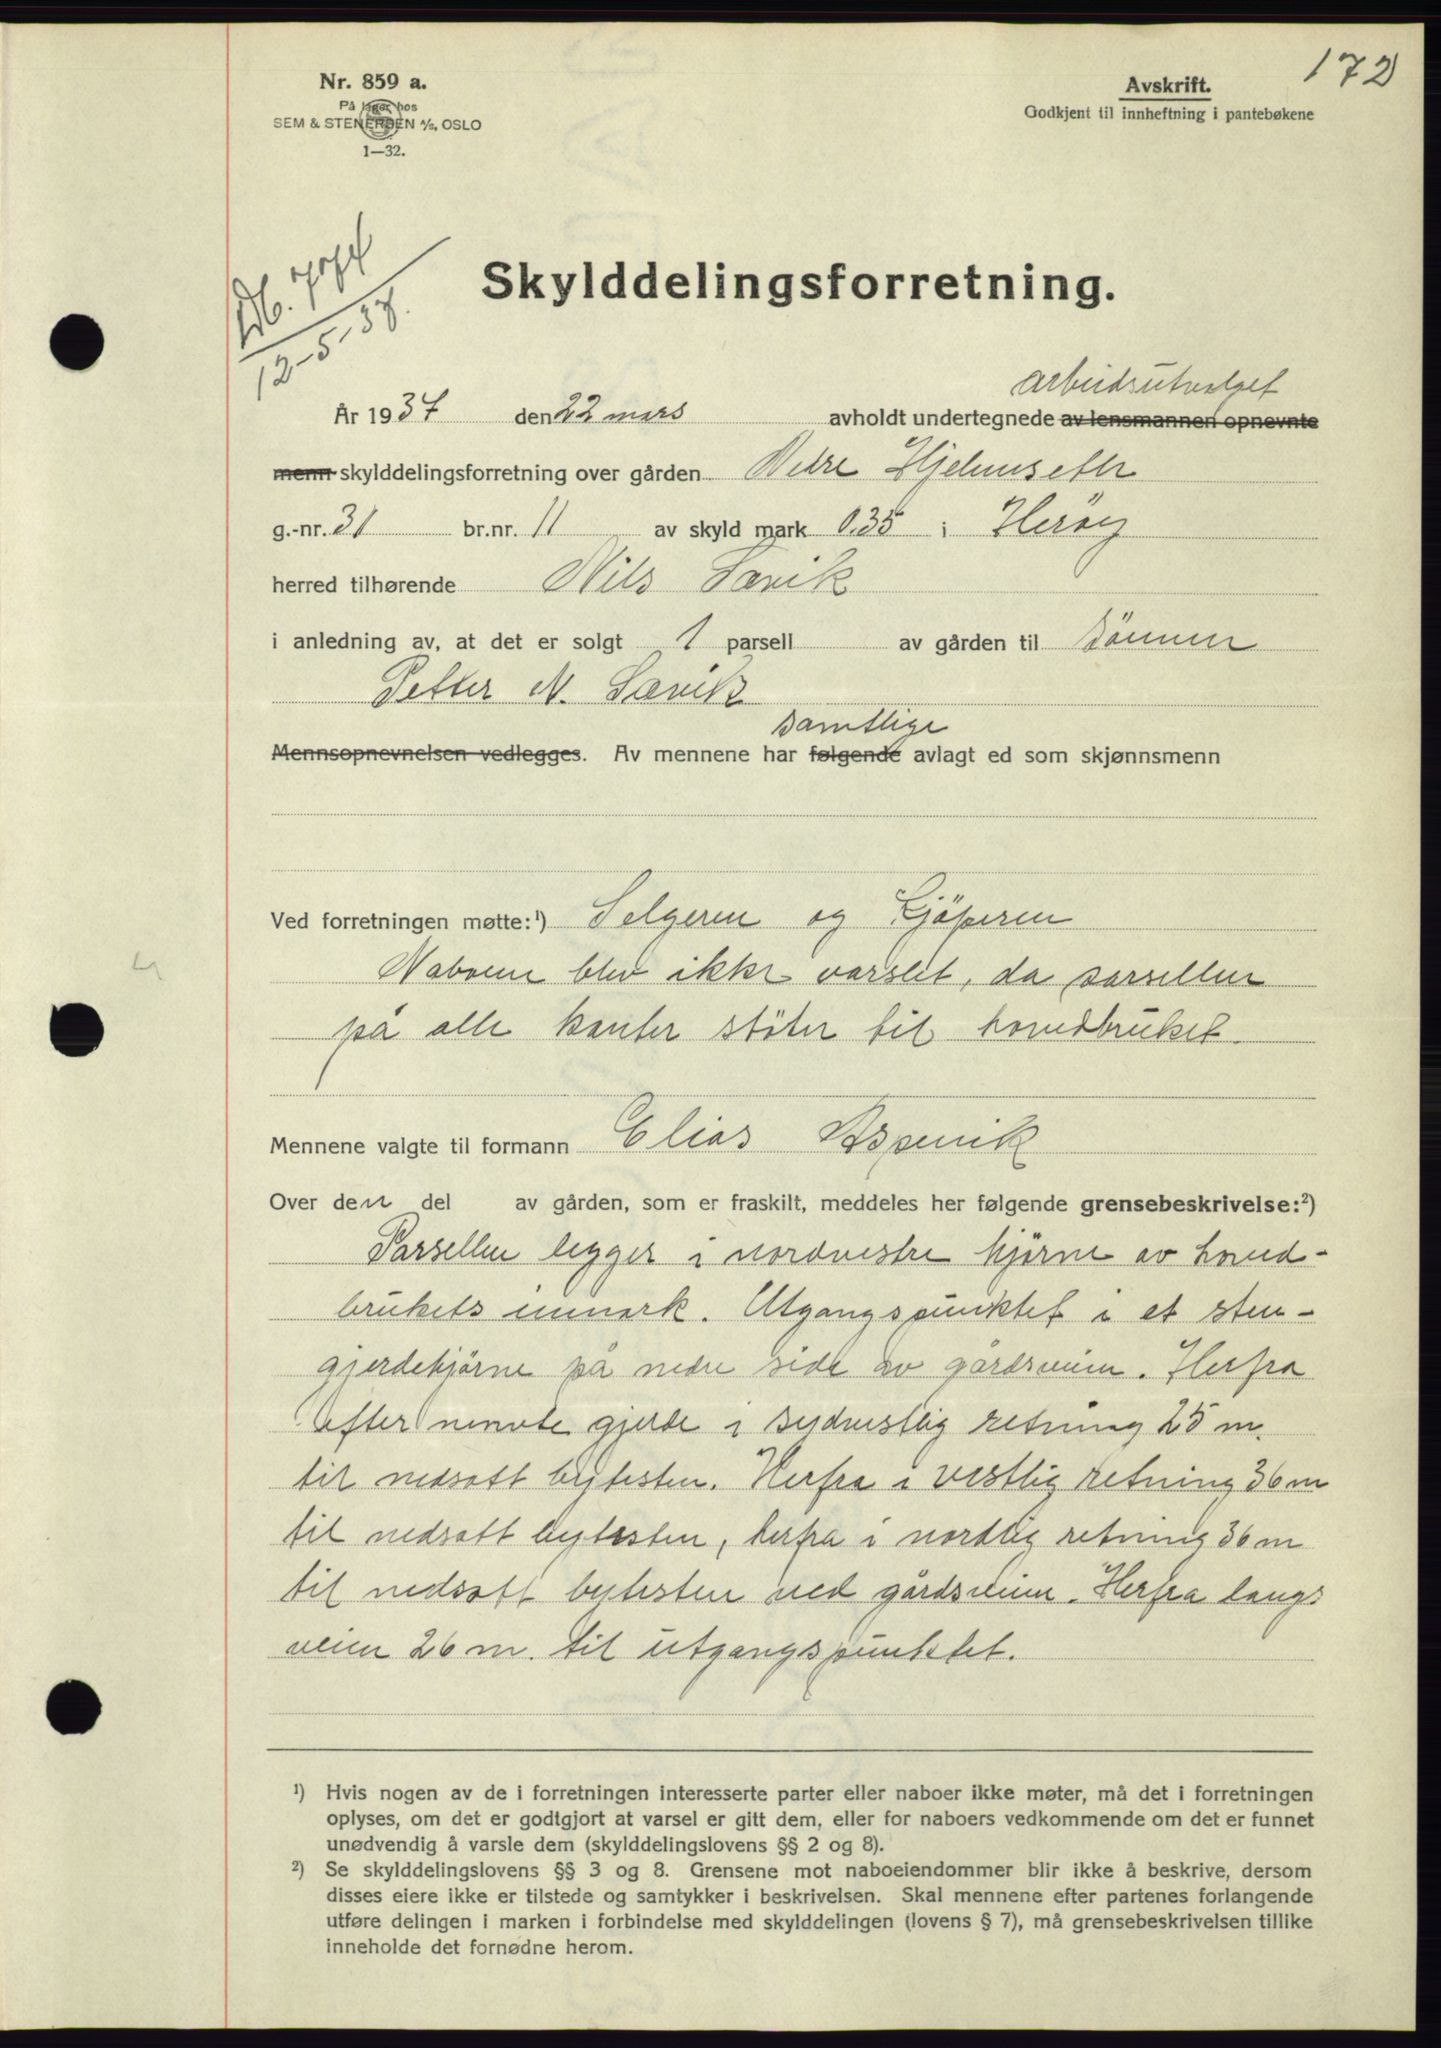 172
Nr. 859 a.
På lager hos
SEM & STENERSEN A/S, OSLO
1—32.
Avskrift.
Godkjent til innheftning i pantebøkene
Skylddelingsforretning.
12-5-37.
arbeidsutvalget
År 1937 den 22 mars avholdt undertegnede av lensmannen opnevnte
menn skylddelingsforretning over gården Nedre Hjelmseth
g.-nr. 31 br.nr. 11 av skyld mark 0.35 i Heröy
herred tilhørende Nils Sævik
i anledning av, at det er solgt 1 parsell av gården til sönnen
Petter N. Sævik
samtlige
Mennsopnevnelsen vedlegges. Av mennene har følgende avlagt ed som skjønnsmenn
Ved forretningen møtte:¹) Selgeren og Kjöperen
Naboene blev ikke varslet, da parsellen
på alle kanter stöter til hovedbruket.
Mennene valgte til formann Elias Aspevik
Over den del av gården, som er fraskilt, meddeles her følgende grensebeskrivelse:²)
Parsellen ligger i nordvestre hjörne av hoved-
brukets innmark. Utgangspunktet i et sten-
gjerdehjörne på nedre side av gårdsveien. Herfra
efter nevnte gjerde i sydvestlig retning 25 m.
til nedsatt bytesten. Herfra i vestlig retning 36 m
til nedsatt bytesten, herfra i nordlig retning 36 m
til nedsatt bytesten ved gårdsveien. Herfra langs
veien 26 m. til utgangspunktet.
¹) Hvis nogen av de i forretningen interesserte parter eller naboer ikke møter, må det i forretningen
oplyses, om det er godtgjort at varsel er gitt dem, eller for naboers vedkommende om det er funnet
unødvendig å varsle dem (skylddelingslovens §§ 2 og 8).
²) Se skylddelingslovens §§ 3 og 8. Grensene mot naboeiendommer blir ikke å beskrive, dersom
disses eiere ikke er tilstede og samtykker i beskrivelsen. Skal mennene efter partenes forlangende
utføre delingen i marken i forbindelse med skylddelingen (lovens § 7), må grensebeskrivelsen tillike
inneholde det fornødne herom.